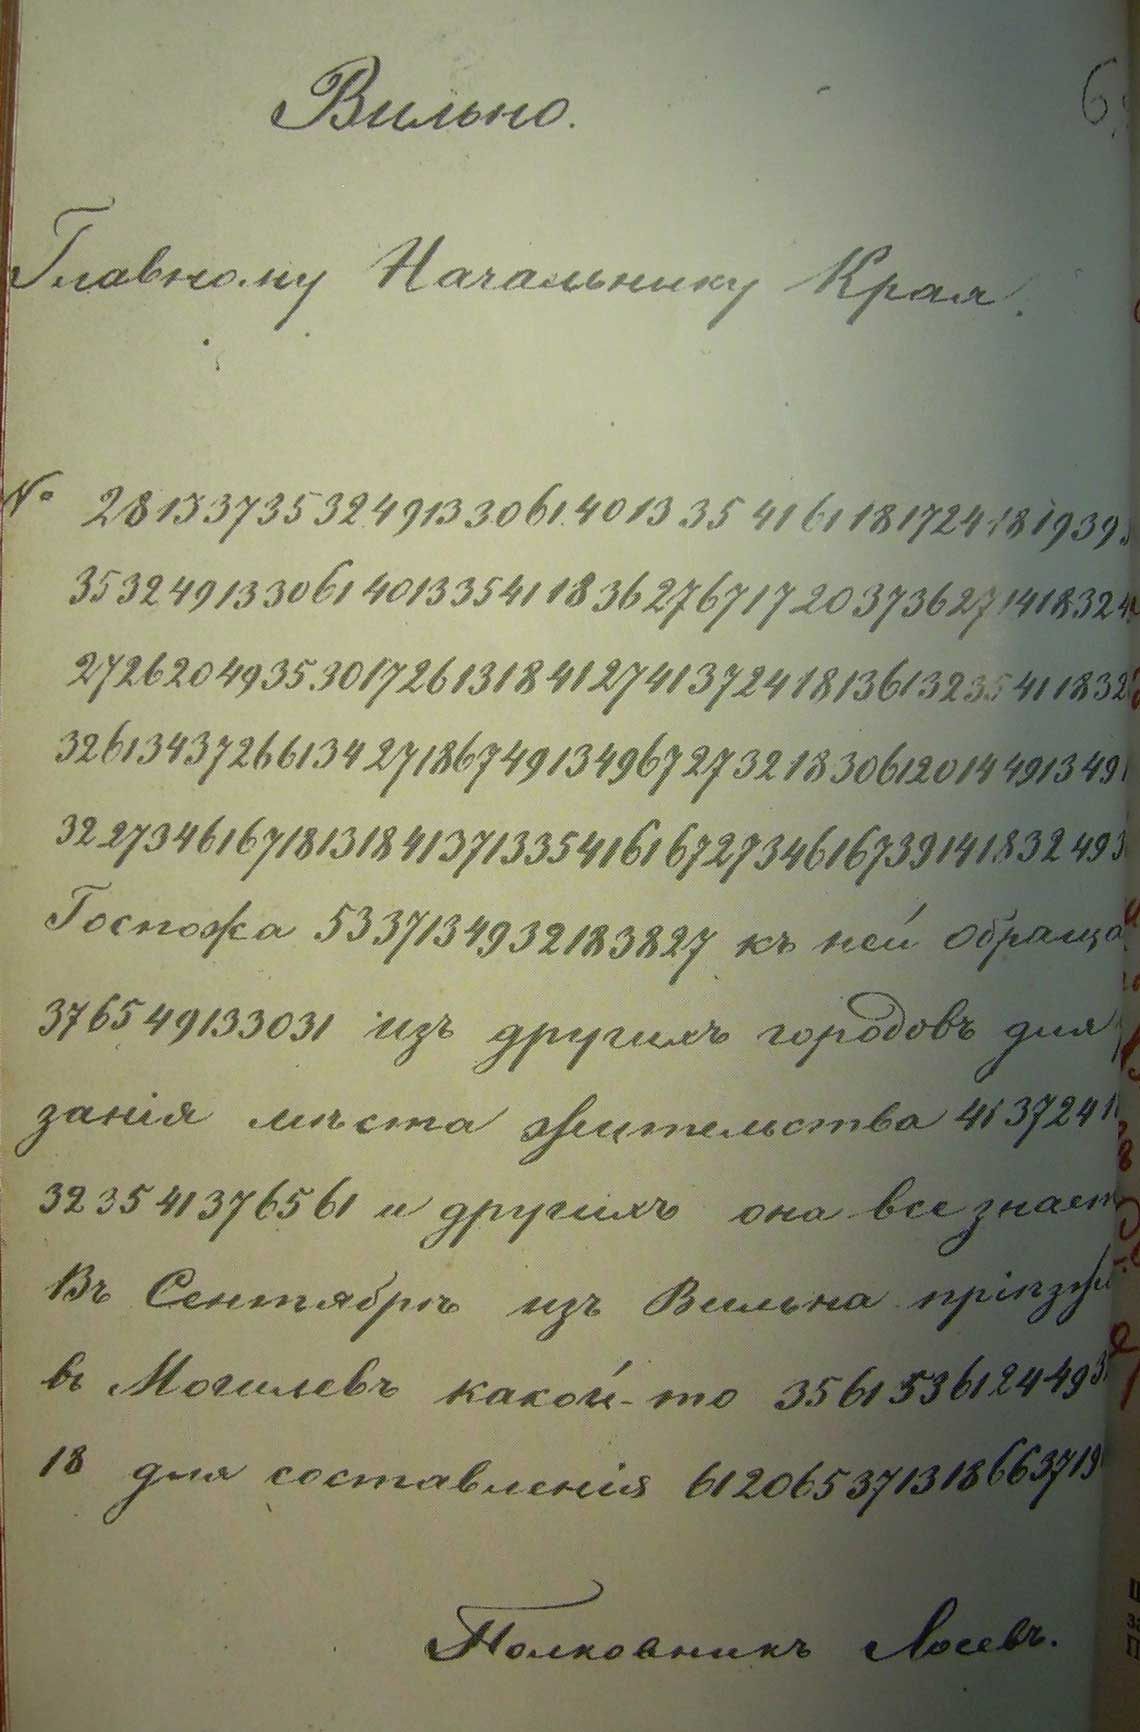 Вильно.
Главному Начальнику Края.
№ 2813373532491330614013354161181724181939
35324913306140133541183627671720373627141832
27262049353017261318412741372418136132354118 32
326134372661342718674913496727321830612014491349
32273461671813184137133541616727346167391418324 93
Госпожа 5337134932183827 къ ней обраща
376549133031 изъ другихъ городовъ для
занія мѣста жительства 4137241
323541376561 и другихъ она все знает
Въ Сентябрѣ изъ Вильна пріѣзжа
въ Могилевъ какой-то 3561536124493
18 для составленія 612065371318663719
Полковникъ Лосевъ.